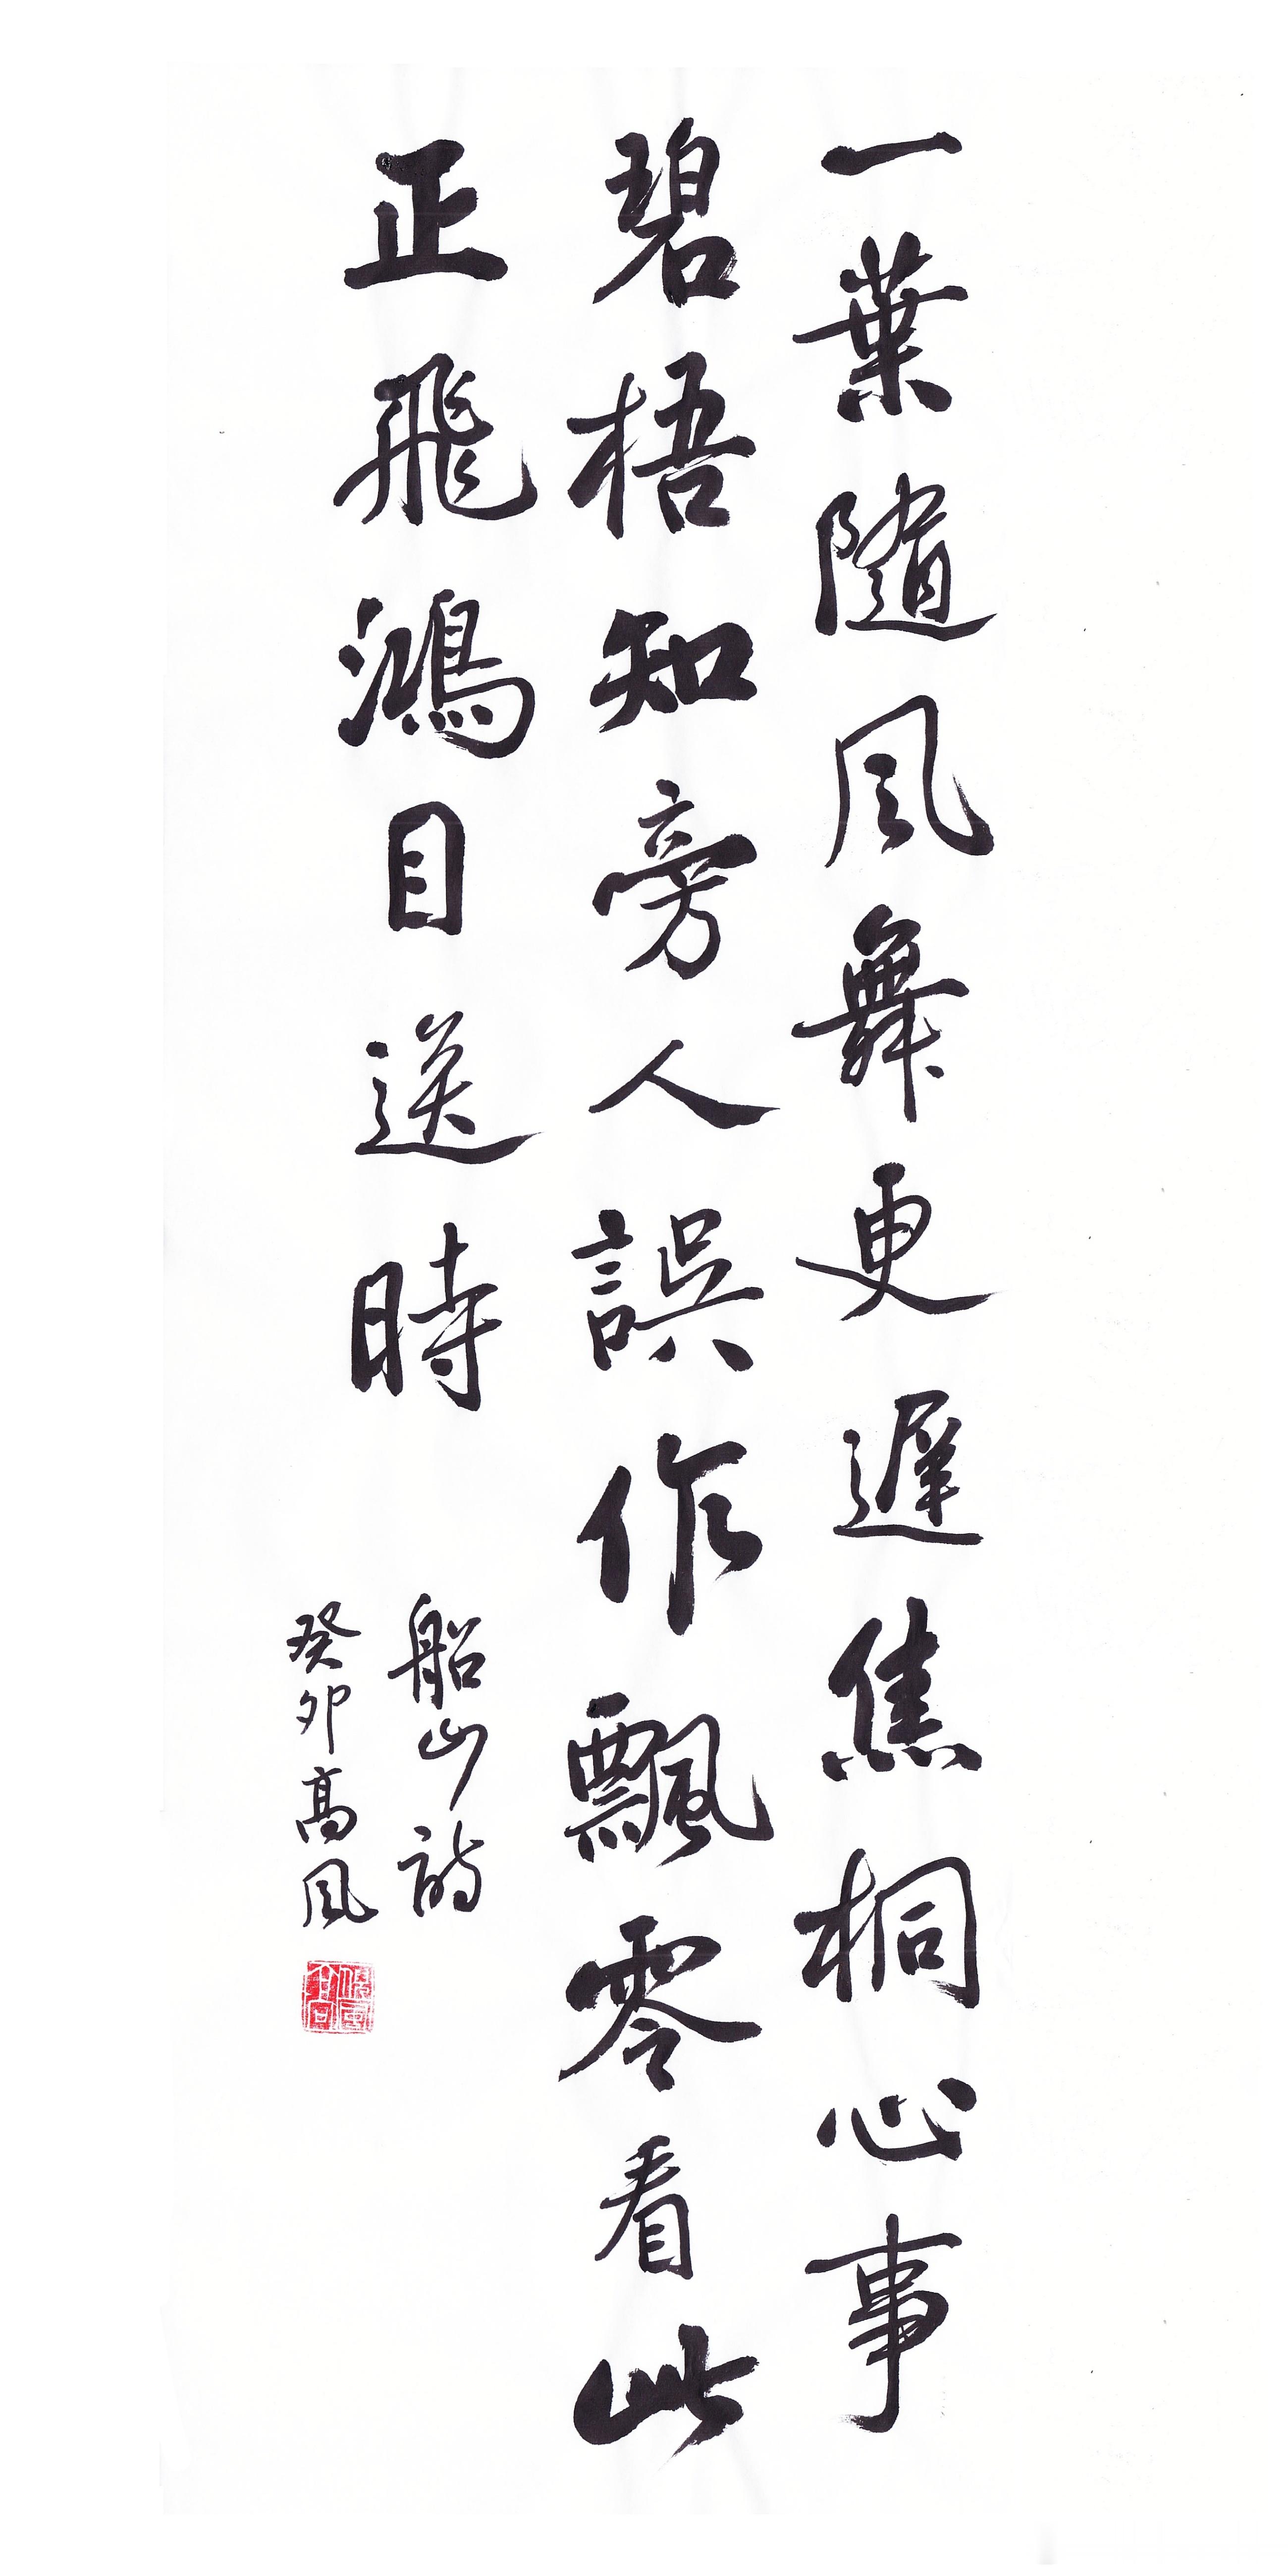 一葉隨風舞更遲焦桐心事
碧梧知旁人誤作飄零看此
正飛鴻目送時
船山詩
癸卯高風